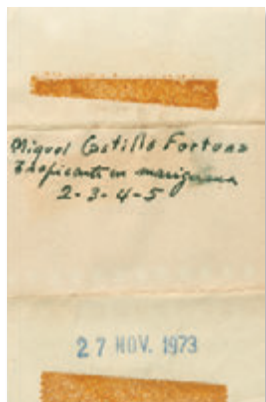 Miguel Castillo Fortuna
Traficante en mariguana
2-3-4-5
27 NOV. 1973